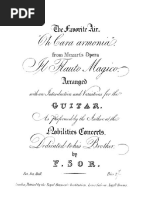 The Favorite Air,
"Oh Cara armonia,"
from Mozart's Opera
Il Flauto Magico,
Arranged
with an Introduction and Variations for the
GUITAR,
As Performed by the Author, at the
Nobilities Concerts.
Dedicated to his Brother,
by
F. SOR.